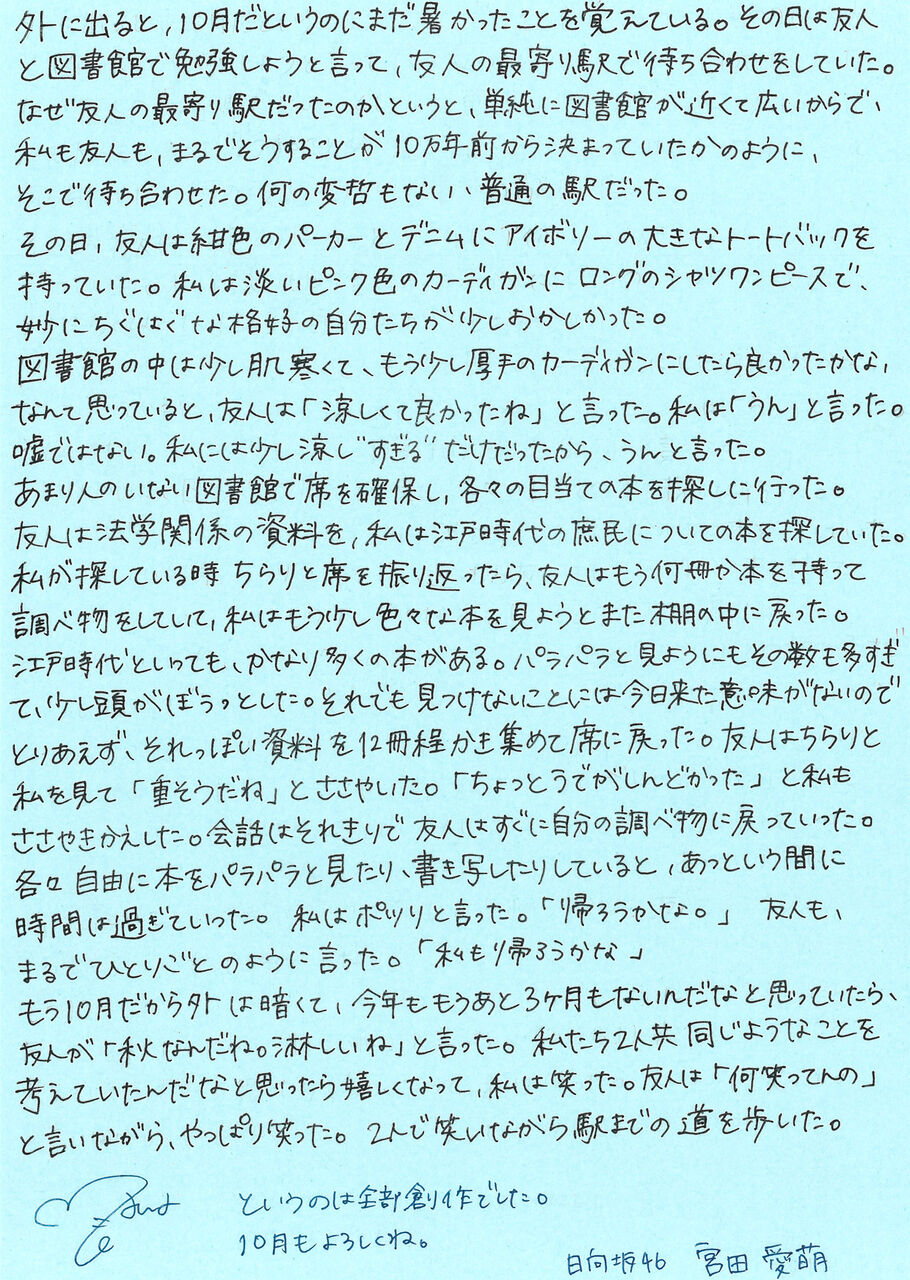 外に出ると,10月だというのにまだ暑かったことを覚えている。その日は友人
と図書館で勉強しようと言って、友人の最寄り駅で待ち合わせをしていた。
なぜ友人の最寄り駅だったのかというと、単純に図書館が近くて広いからで、
私も友人も、まるでそうすることが10万年前から決まっていたかのように、
そこで待ち合わせた。何の変哲もない、普通の駅だった。
その日、友人は紺色のパーカーとデニムにアイボリーの大きなトートバックを
持っていた。私は淡いピンク色のカーディガンにロングのシャツワンピースで、
妙にちぐはぐな格好の自分たちが少しおかしかった。
図書館の中は少し肌寒くて、もう少し厚手のカーディガンにしたら良かったかな,
なんて思っていると,友人は「涼しくて良かったね」と言った。私は「うん」と言った。
嘘ではない。私には少し涼し"すぎる"だけだったから、うんと言った。
あまり人のいない図書館で席を確保し,各々の目当ての本を探しに行った。
友人は法学関係の資料を,私は江戸時代の庶民についての本を探していた。
私が探している時ちらりと席を振り返ったら、友人はもう何冊か本を持って
調べ物をしてして,私はもう少し色々な本を見ようとまた棚の中に戻った。
江戸時代といっても、かなり多くの本がある。パラパラと見ようにもその数も多すぎ
て、少し頭がぼうっとした。それでも見つけないことには今日来た意味がないので
とりあえず、それっぽい資料を12冊程かき集めて席に戻った。友人はちらりと
私を見て「重そうだね」とささやいた。「ちょっとうでがしんどかった」と私も
ささやきかえした。会話はそれきりで友人はすぐに自分の調べ物に戻っていった。
各々自由に本をパラパラと見たり、書き写したりしていると,あっという間に
時間は過ぎていった。私はポツリと言った。「帰ろうかな。」友人も、
まるでひとりごとのように言った。「私も帰ろうかな」
もう10月だから外は暗くて、今年ももうあと3ヶ月もないんだなと思っていたら、
友人が「秋なんだね。淋しいね」と言った。私たち2人共同じようなことを
考えていたんだなと思ったら嬉しくなって,私は笑った。友人は「何笑ってんの」
と言いながら、やっぱり笑った。2人で笑いながら駅までの道を歩いた。
というのは全部創作でした。
10月もよろしくね。
日向坂46 宮田愛萌